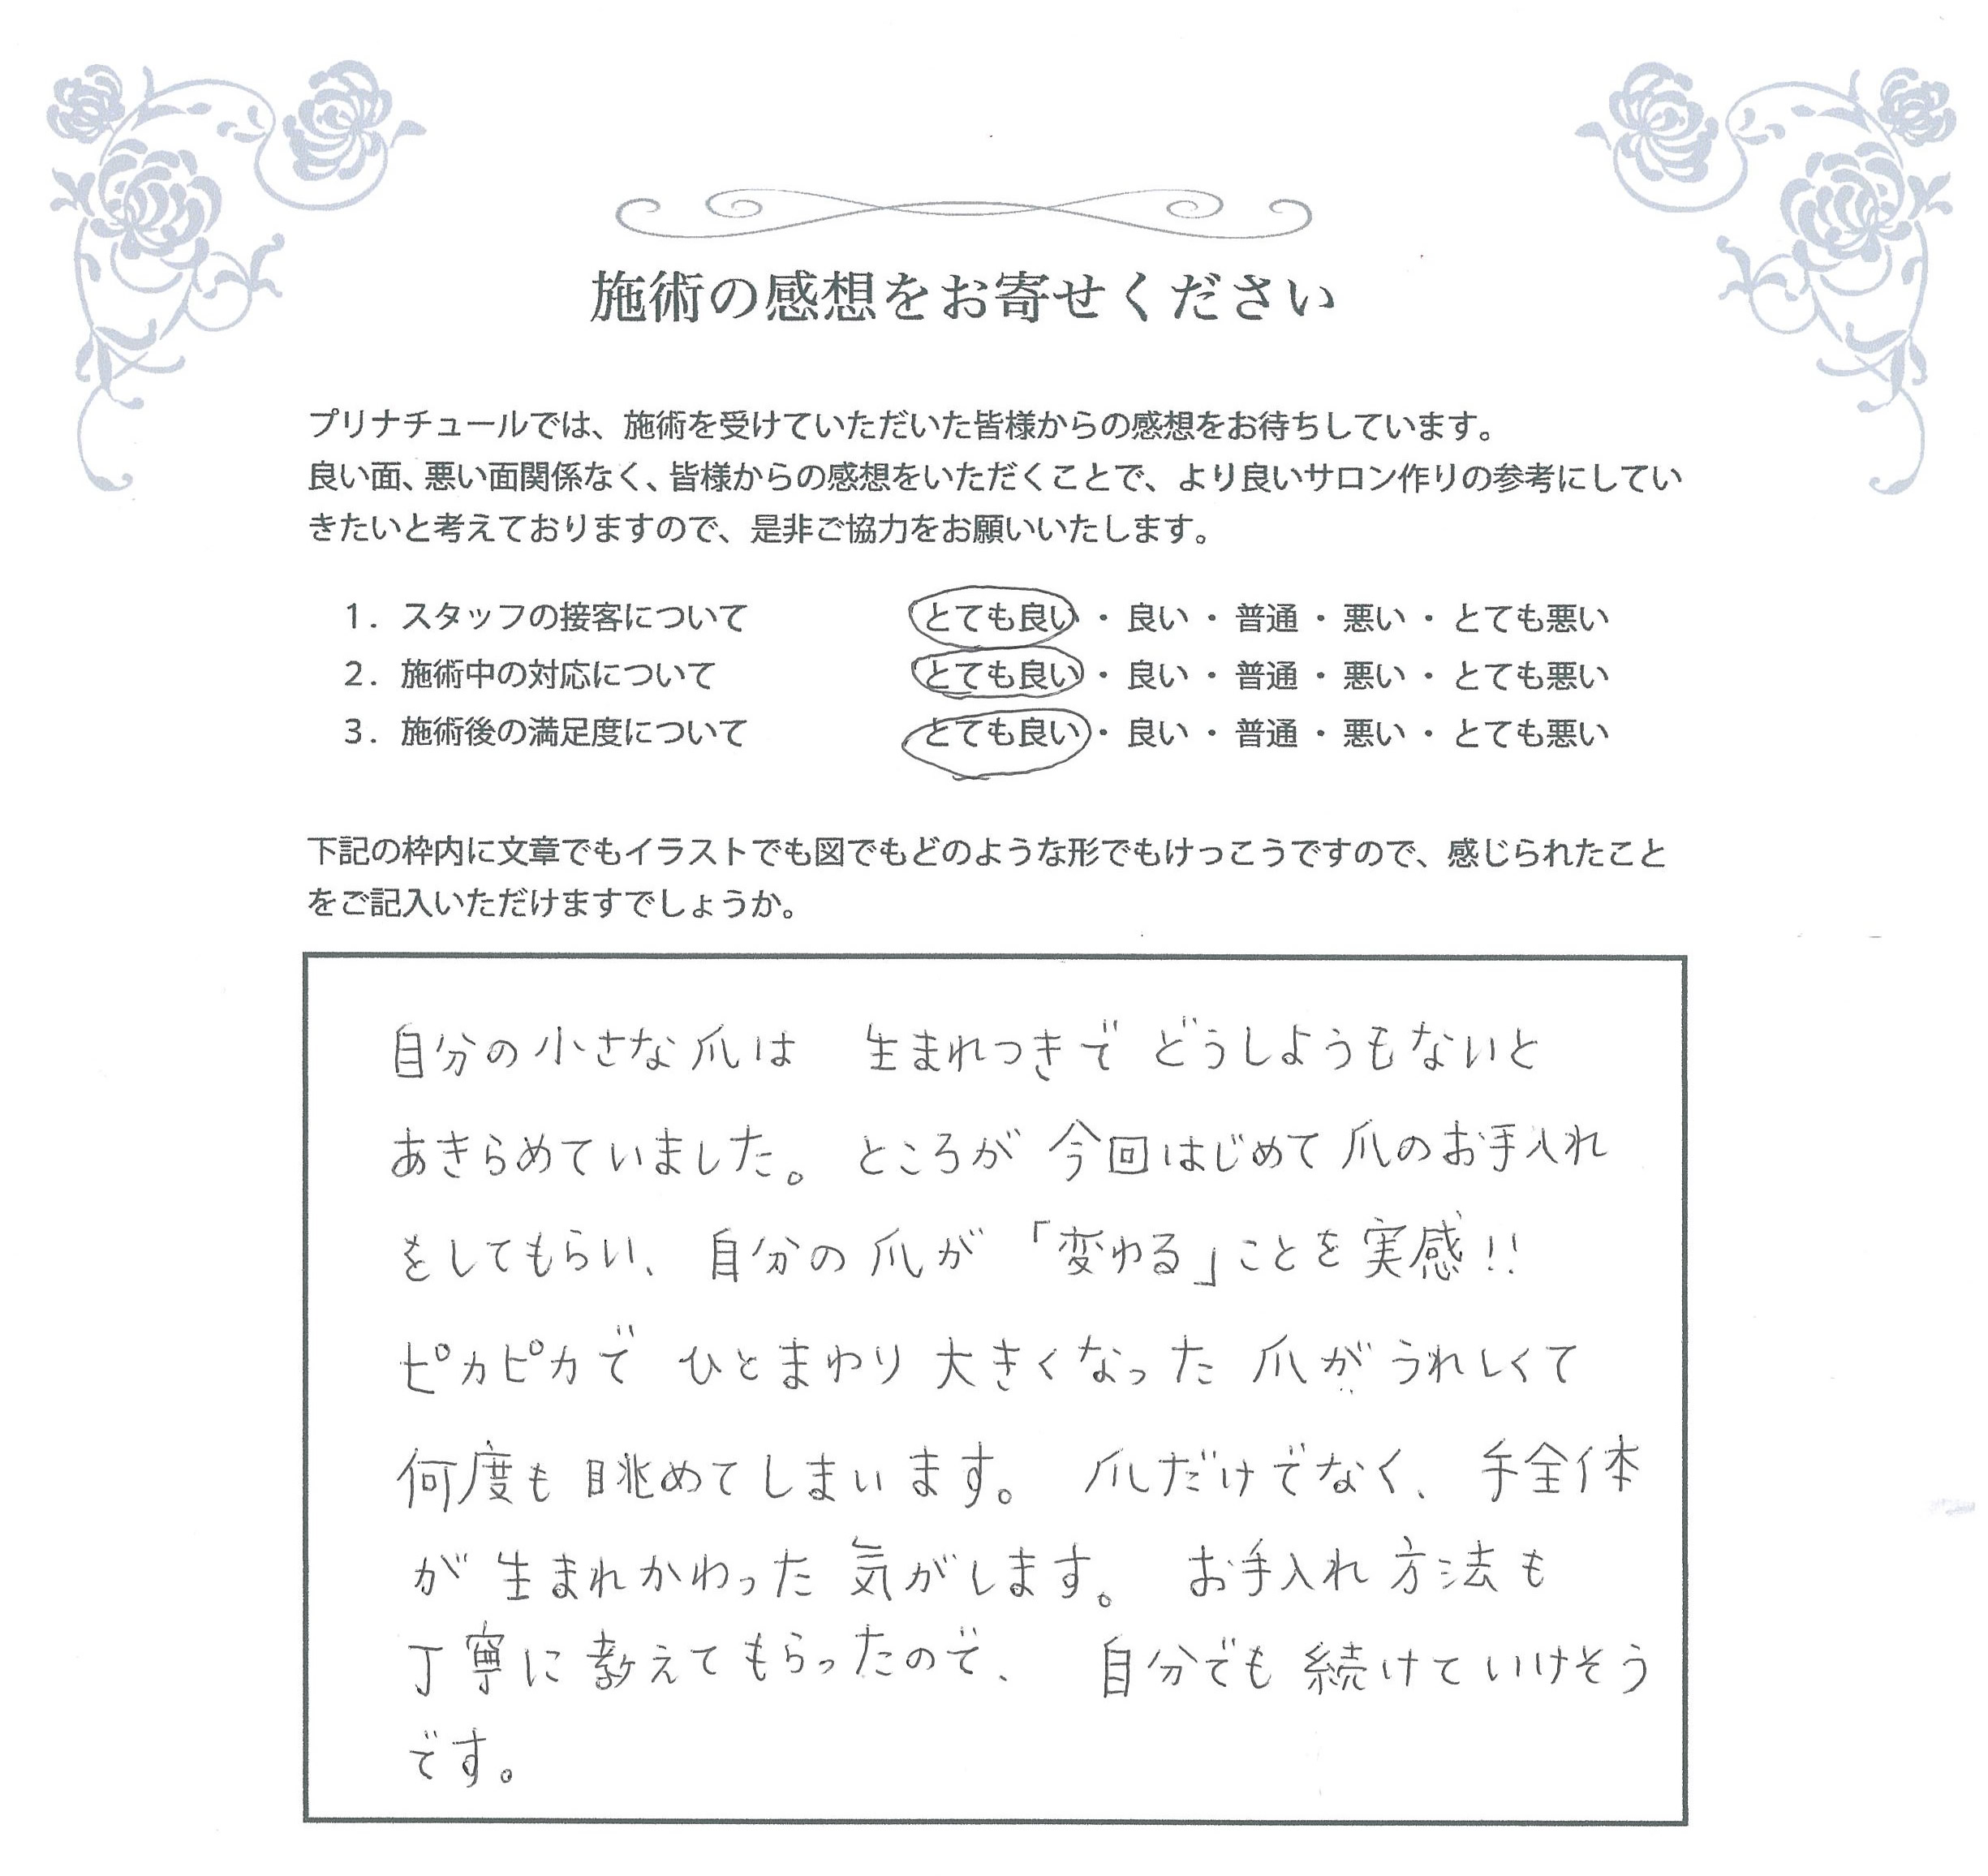 施術の感想をお寄せください
プリナチュールでは、施術を受けていただいた皆様からの感想をお待ちしています。
良い面、悪い面関係なく、皆様からの感想をいただくことで、より良いサロン作りの参考にしてい
きたいと考えておりますので、是非ご協力をお願いいたします。
1. スタッフの接客について とても良い・良い・普通・悪い・とても悪い
2. 施術中の対応について とても良い・良い・普通・悪い・とても悪い
3. 施術後の満足度について とても良い・良い・普通・悪い・とても悪い
下記の枠内に文章でもイラストでも図でもどのような形でもけっこうですので、感じられたこと
をご記入いただけますでしょうか。
自分の小さな爪は 生まれつきで どうしようもないと
あきらめていました。 ところが 今回はじめて 爪のお手入れ
をしてもらい、 自分の爪が 「変わる」ことを実感!!
ピカピカで ひとまわり 大きくなった 爪が うれしくて
何度も 眺めてしまいます。 爪だけでなく、 手全体
が 生まれかわった 気がします。 お手入れ 方法も
丁寧に 教えてもらったので、 自分でも 続けていけそう
です。